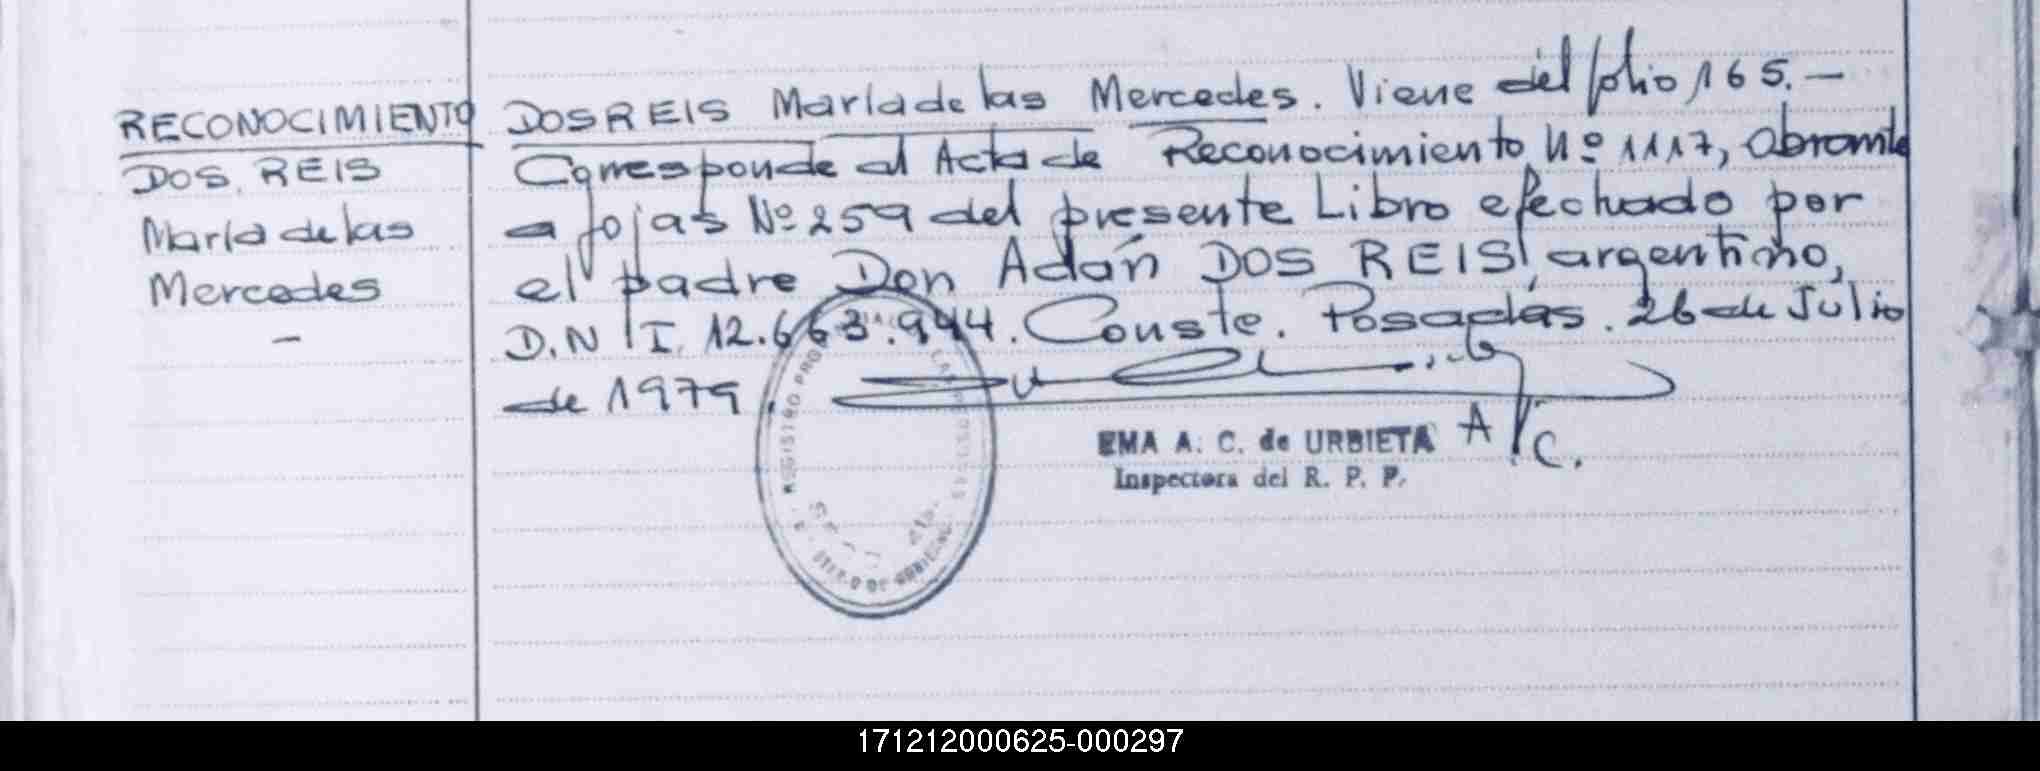 RECONOCIMIENTO
DOS REIS
María de las
Mercedes
-
DOS REIS María de las Mercedes. Viene del folio 165.-
Corresponde al Acta de Reconocimiento Nº 1117, obrante
a fojas Nº 259 del presente Libro efectuado por
el padre Don Adán DOS REIS, argentino,
D.N.I. 12.663.944. Conste. Posadas. 26 de Julio
de 1979.
EMA A. C. de URBIETA A/C.
Inspectora del R. P. P.
REGISTRO PROV
DE LAS PERSONAS
171212000625-000297